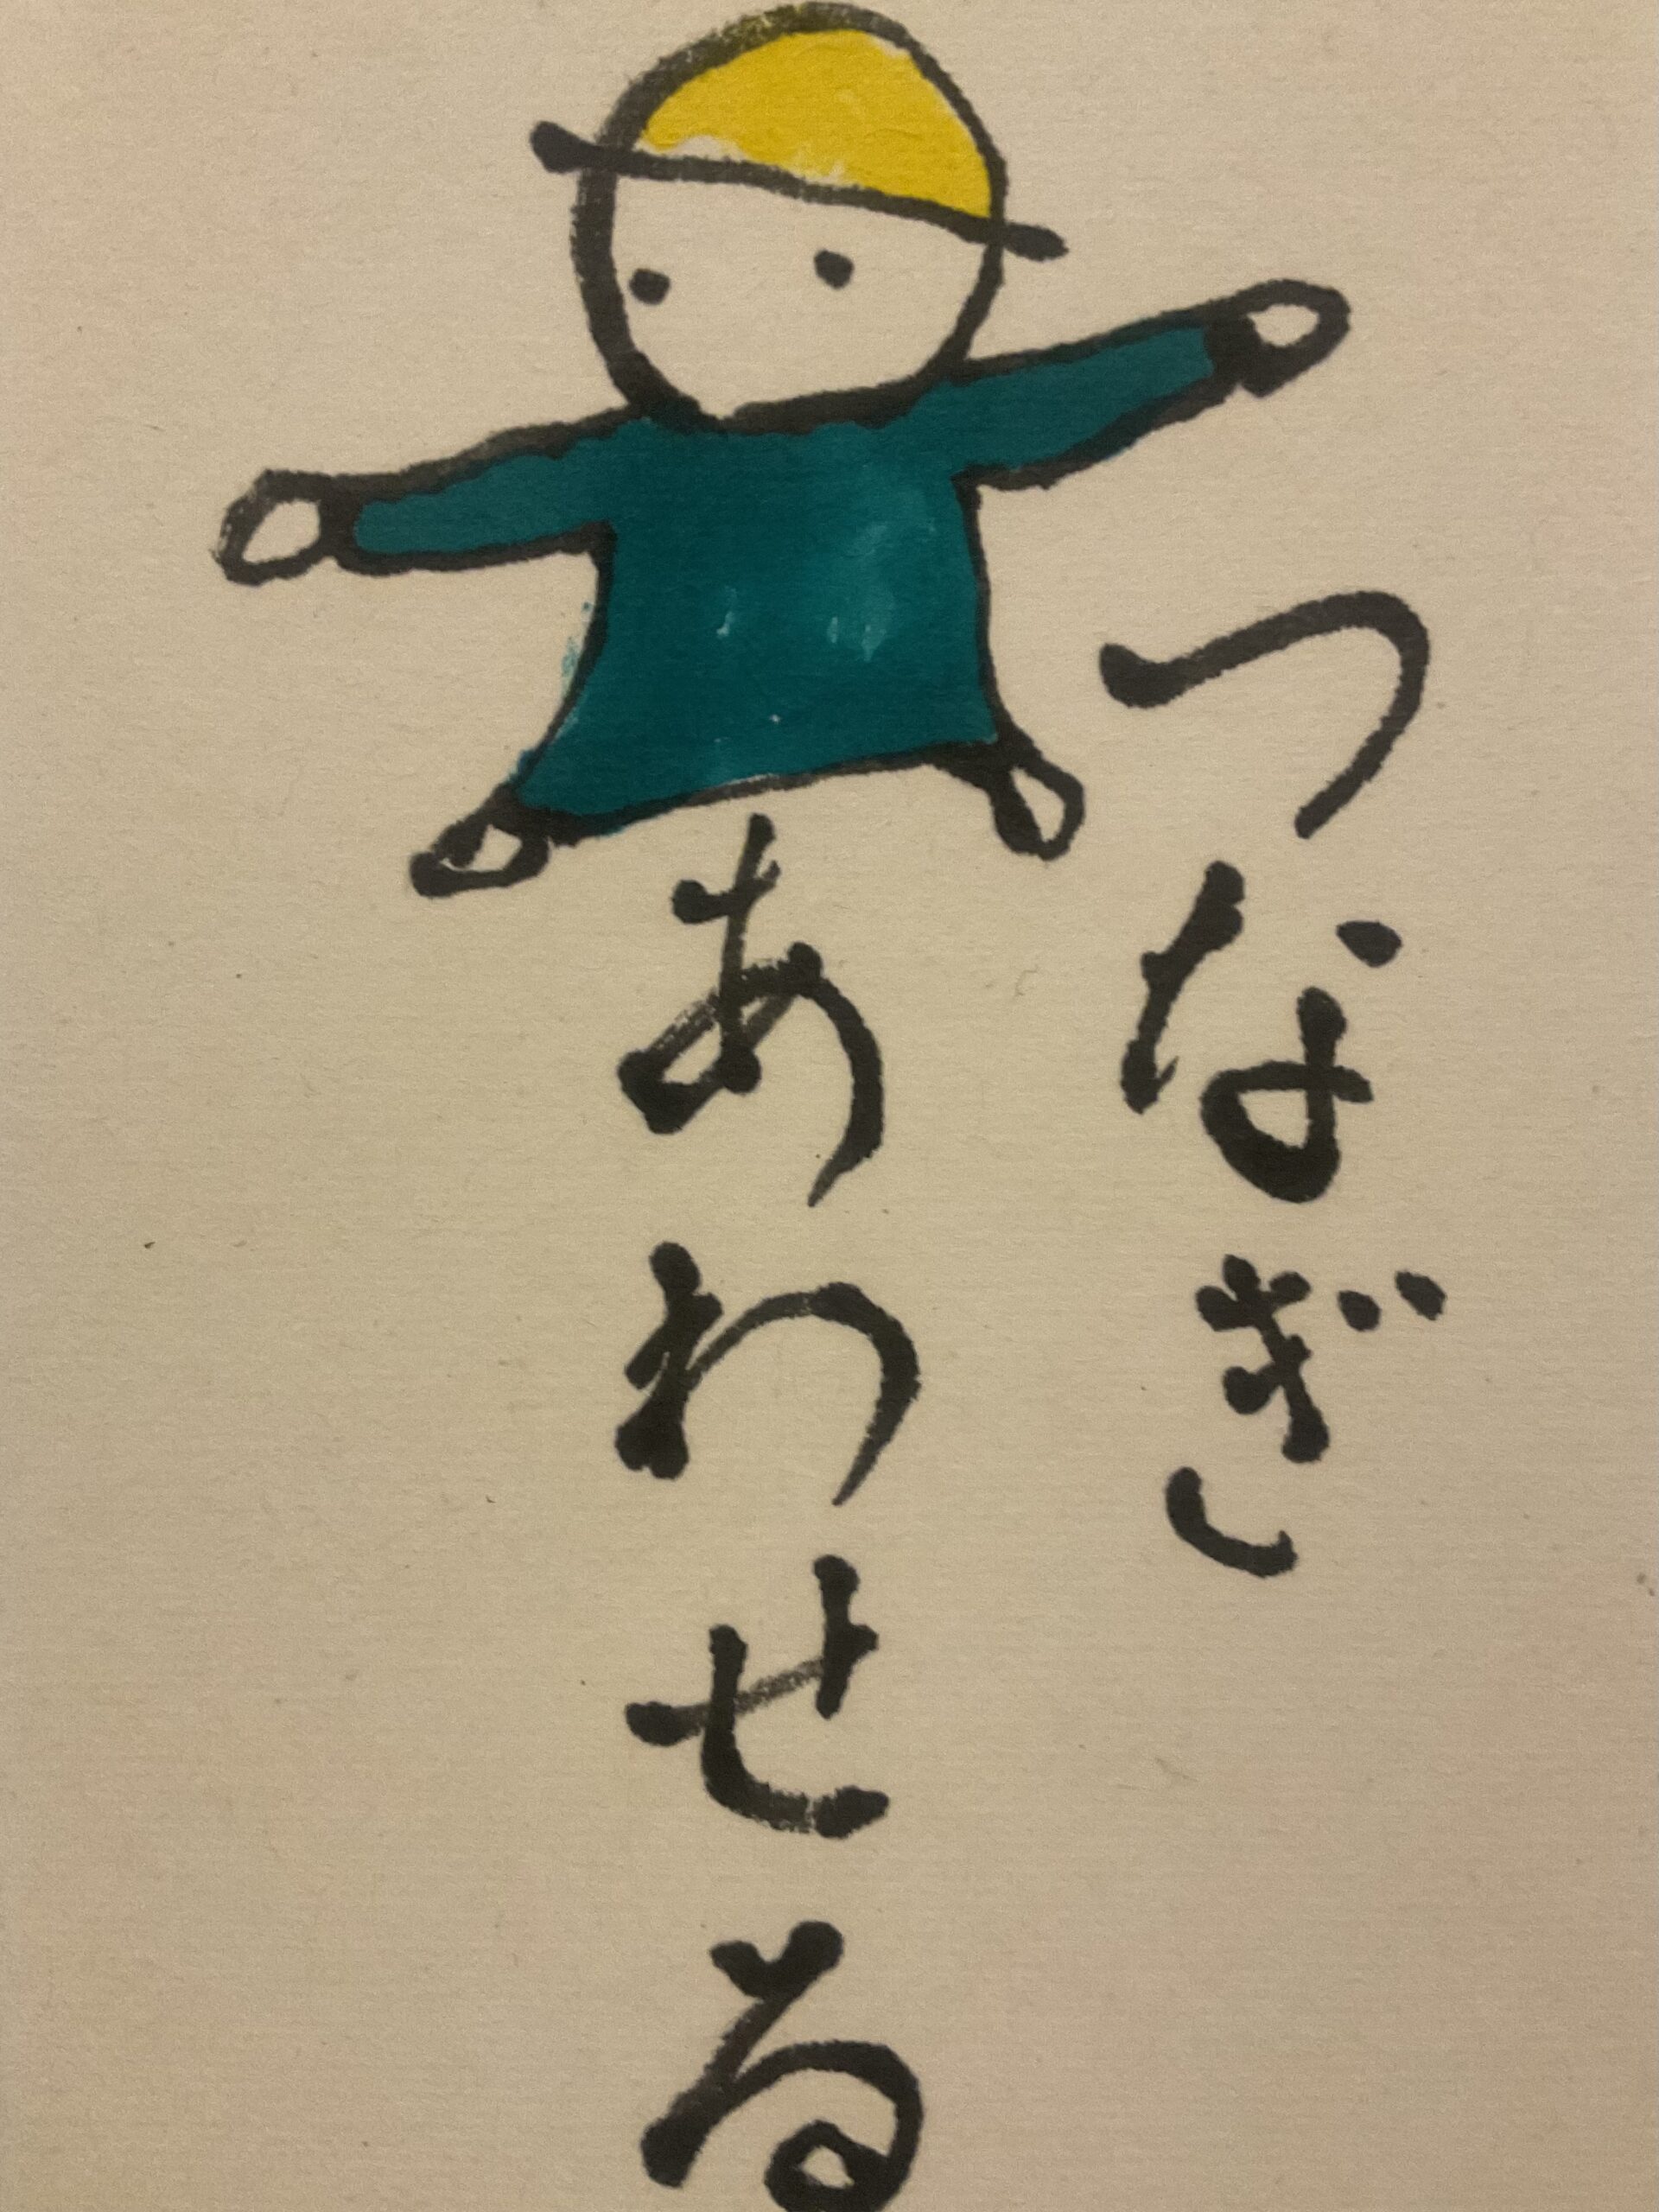 つなぎ
あわせる